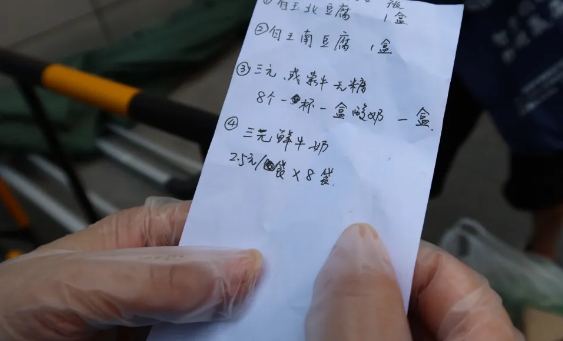 ①白玉北豆腐 1盒
②白玉南豆腐 1盒
③三元,或蒙牛无糖
8个一杯一盒酸奶 一盒.
④三元鲜牛奶
2.5元/袋×8袋